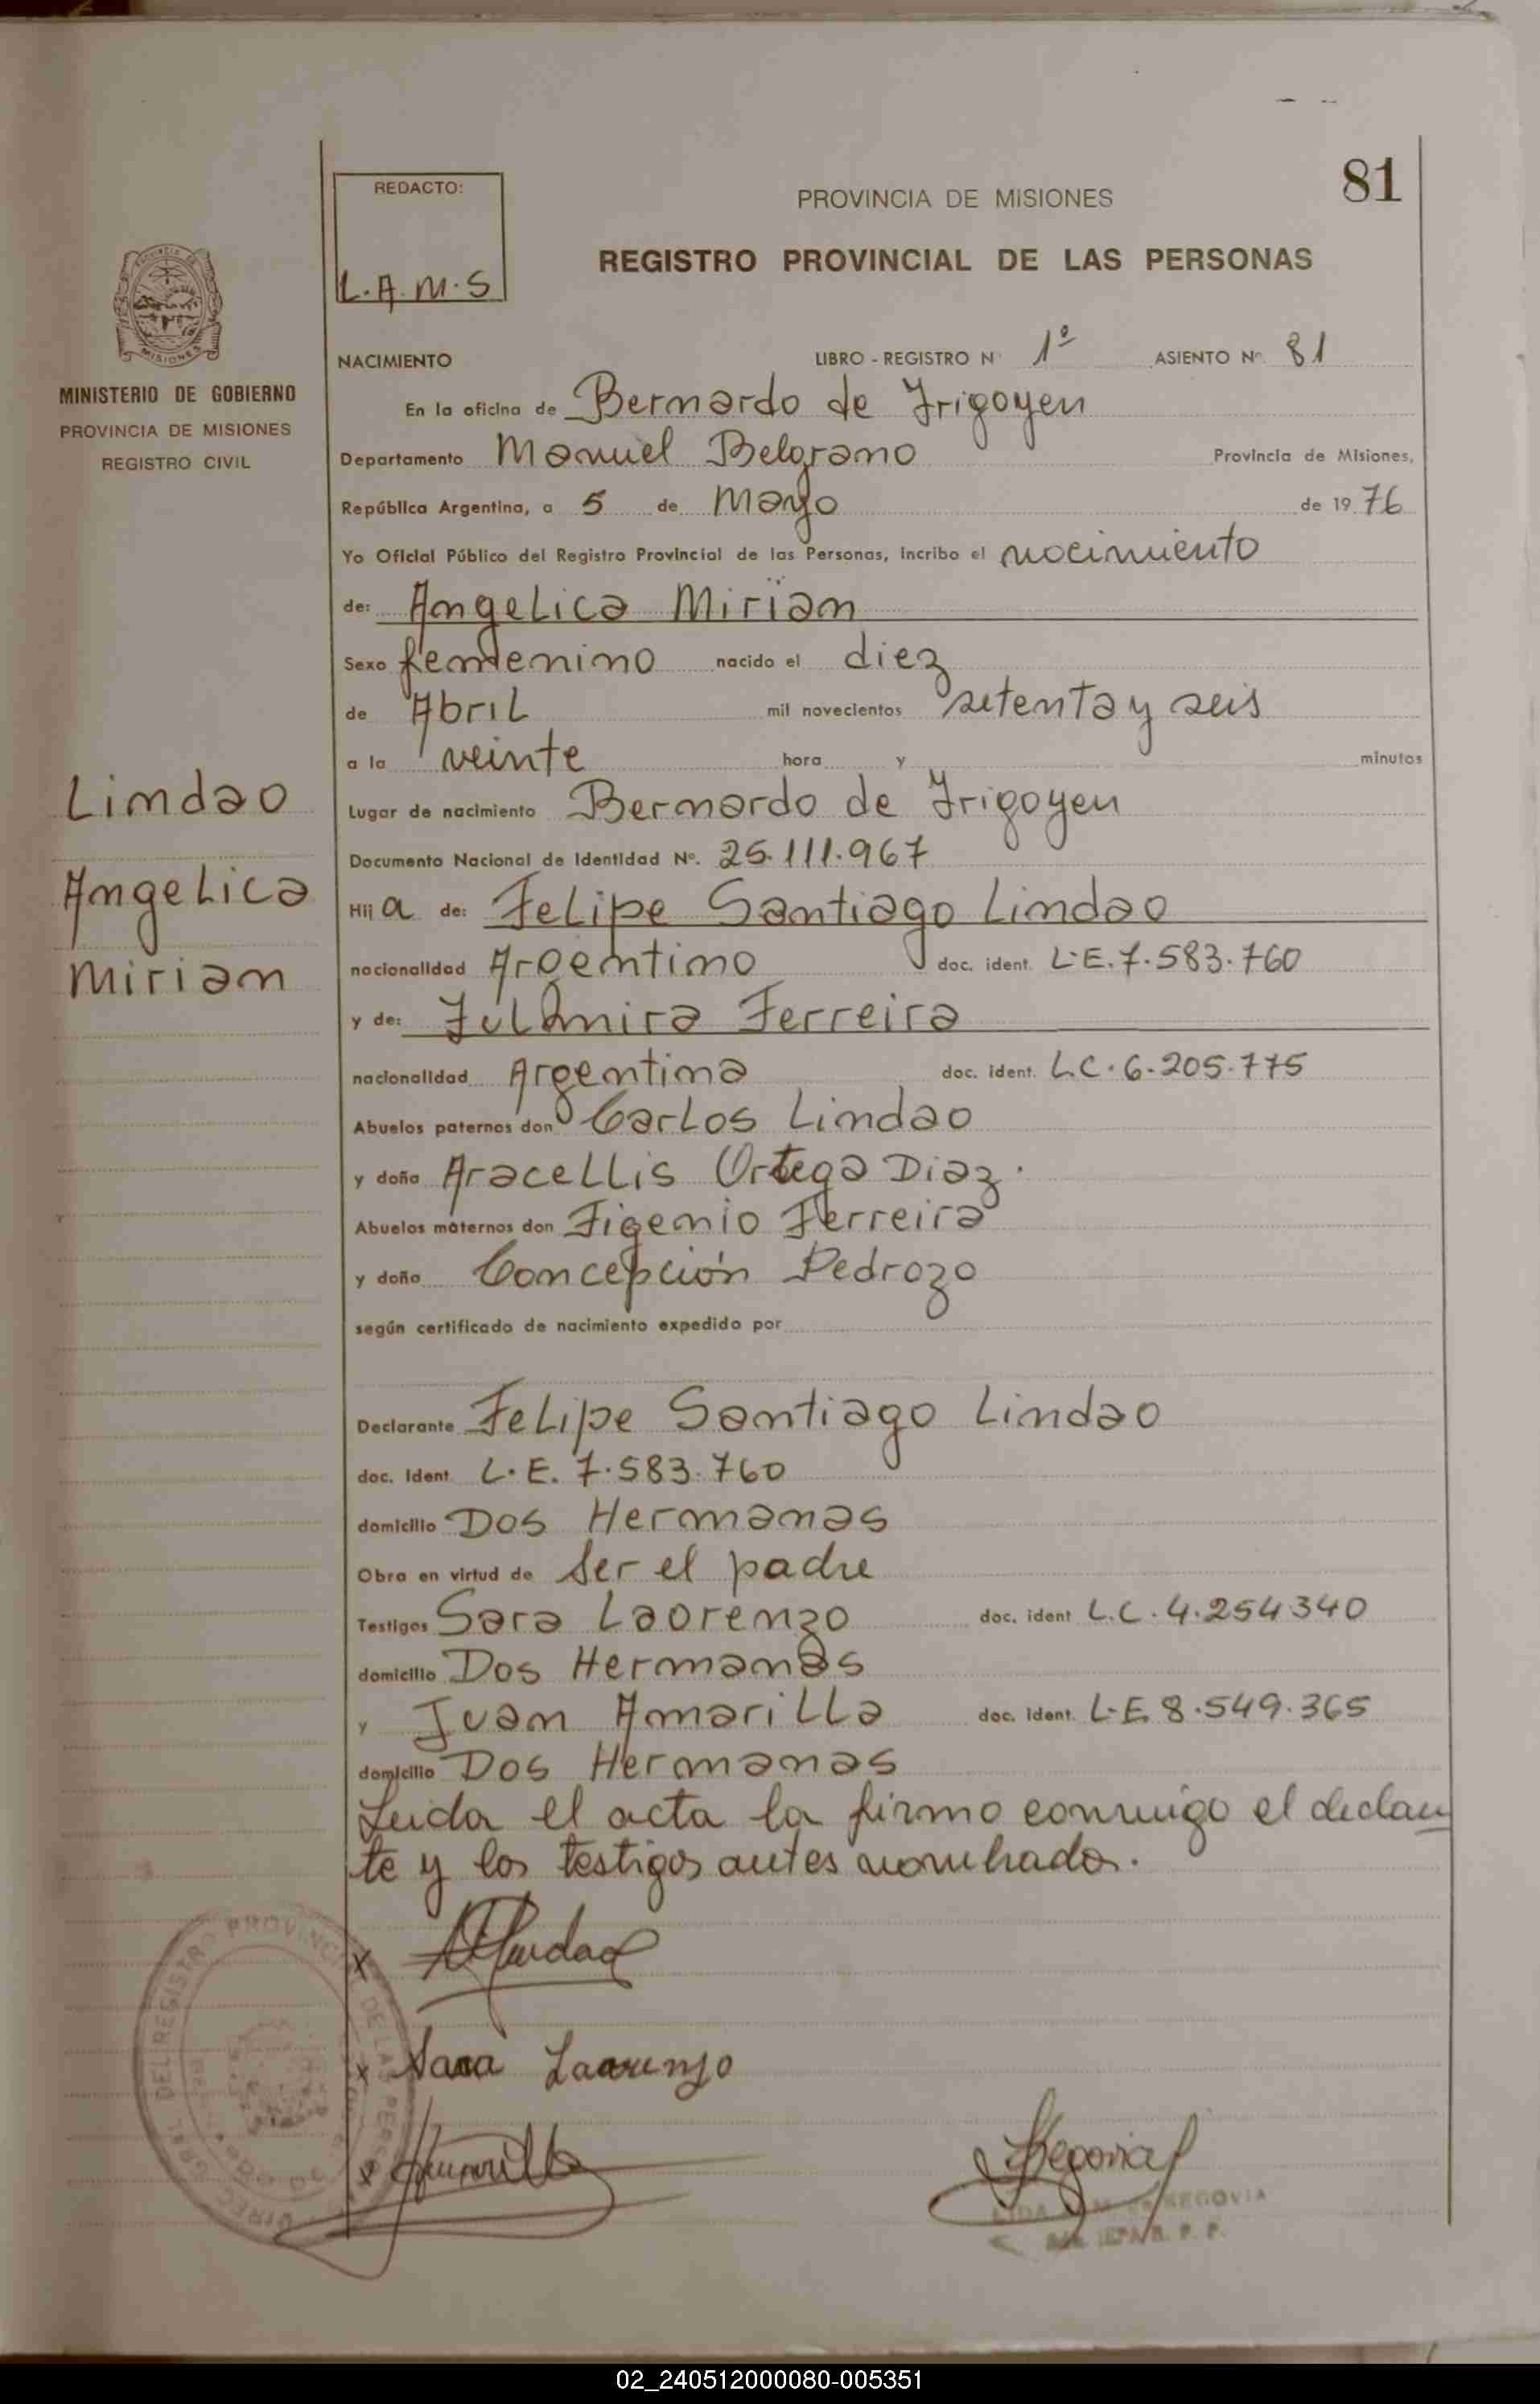 81
REDACTO:
L.A.M.S
PROVINCIA DE MISIONES
REGISTRO PROVINCIAL DE LAS PERSONAS
MINISTERIO DE GOBIERNO
PROVINCIA DE MISIONES
REGISTRO CIVIL
NACIMIENTO LIBRO - REGISTRO Nº 1º ASIENTO Nº 81
En la oficina de Bernardo de Irigoyen
Departamento Manuel Belgrano Provincia de Misiones,
República Argentina, a 5 de Mayo de 1976
Yo Oficial Público del Registro Provincial de las Personas, incribo el nacimiento
de: Angelica Miriam
Sexo femenino nacido el diez
de Abril mil novecientos setenta y seis
a la veinte hora y minutos
Limdao
Angelica
Miriam
Lugar de nacimiento Bernardo de Irigoyen
Documento Nacional de Identidad Nº. 25.111.967
Hij a de: Felipe Santiago Limdao
nacionalidad Argentino doc. ident. L.E. 7.583.760
y de: Ferreira
nacionalidad Argentina doc. ident. L.C. 6.205.775
Abuelos paternos don Carlos Limdao
y doña Aracellis Ortega Diaz.
Abuelos maternos don Figenio Ferreira
y doña Concepción Pedrozo
según certificado de nacimiento expedido por
Declarante Felipe Santiago Limdao
doc. Ident. L.E. 7.583.760
domicilio Dos Hermanas
Obra en virtud de Ser el padre
Testigos Sara Laorenzo doc. ident L.C. 4.254340
domicilio Dos Hermanas
y Juan Amarilla doc. ident. L.E. 8.549.365
domicilio Dos Hermanas
Leida el acta la firmo conmigo el declaran
te y los testigos antes nombrados.
x
x Sara Laorenzo
x
Segovia
SEGOVIA
02_240512000080-005351